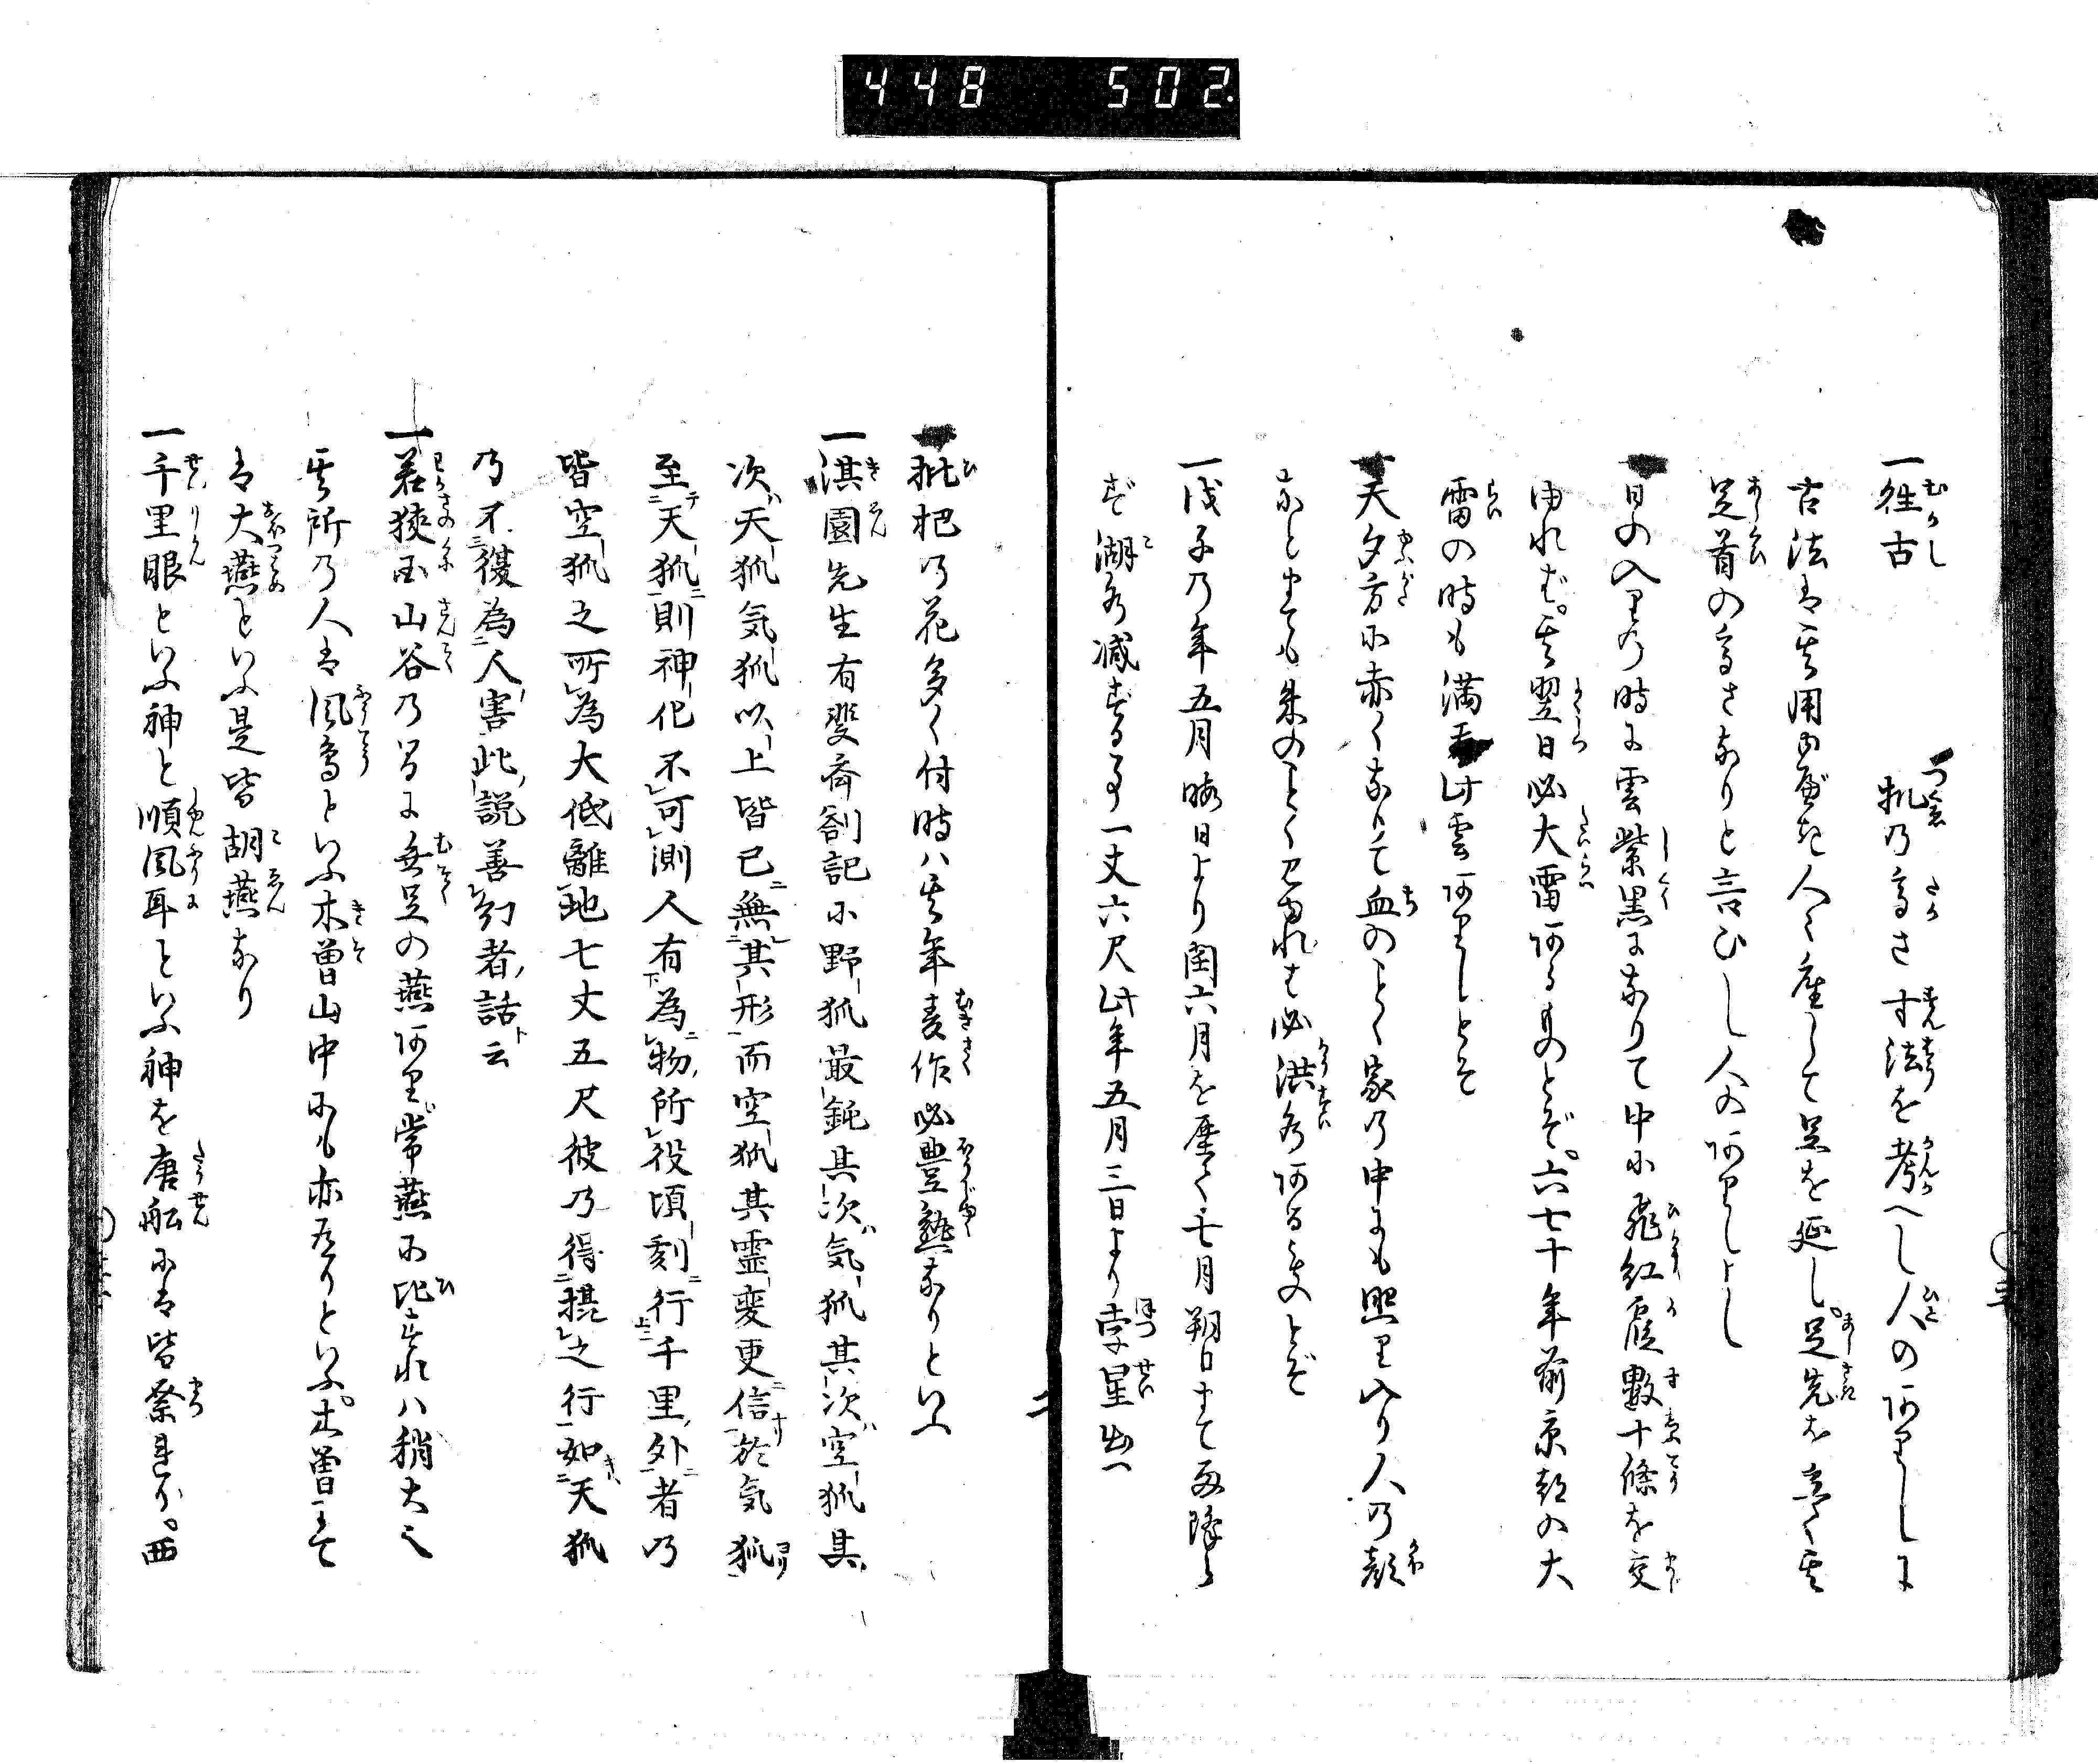 448 502
一往古　机乃高さ寸法を考へし人のありしに
古法は其用ゆべき人々座して足を延し足先を立て其
足首の高さなりと言ひし人のありしよし
一日の入りの時に雲紫黒になりて中に飛紅霞数十條を交
ゆれば其翌日必大雷あるものとぞ六七十年前京都の大
雷の時も満天此雲ありしとぞ
一天夕方に赤くなりて血のごとく家乃中にも照り入り人乃顔
なとまても朱のごとく見ゆれは必洪水あるものとぞ
一戊子乃年五月晦日より閏六月を歴て七月朔日まて雨降ら
ず湖水減する事一丈六尺此年五月三日より孛星出
一枇杷乃花多く付時ハ其年麦作必豊熟なりといへり
一淇園先生有斐斎劄記に野狐最鈍其次気狐其次空狐其
次天狐気狐以上皆已無其形而空狐其霊変更信於気狐
至天狐則神化不可測人有為物所役頃刻行千里外者乃
皆空狐之所為大低離地七丈五尺彼乃得提之行如天狐
乃不復為人害此説善幻者話云
一若狭国山谷乃間に無足の燕あり常燕に比すれハ稍大也
其所乃人は風鳥といふ木曽山中にも亦ありといふ木曽にて
は大燕といふ是皆胡燕なり
一千里眼といふ神と順風耳といふ神を唐船には皆祭るよし西